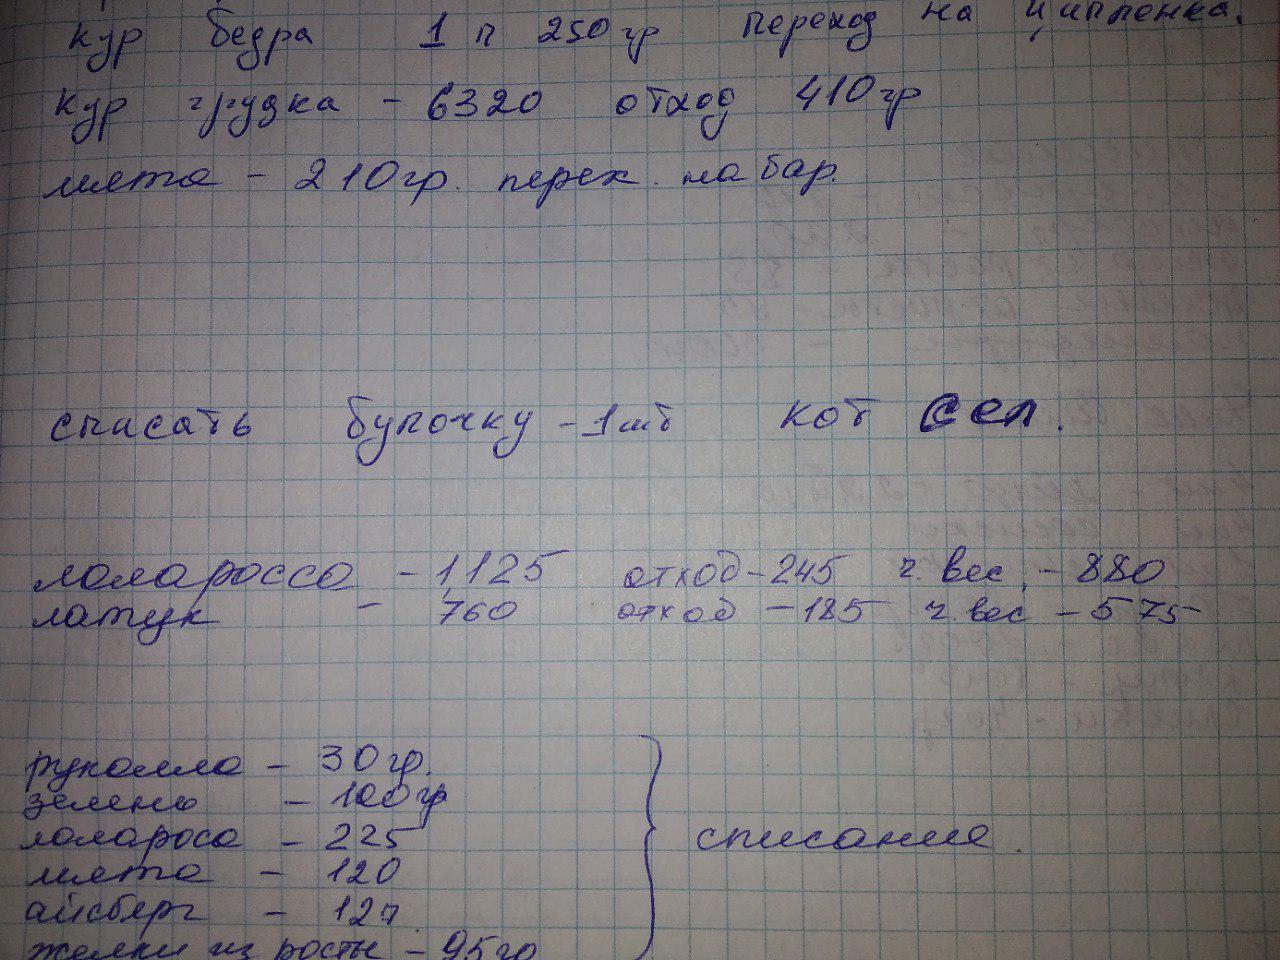 кур бедра 1 п 250гр переход на цыпленка.
кур грудка - 6320 отход 410гр
мята - 210гр. перех. на бар.
списать булочку - 1шт кот сел.
лолароссо - 1,125 отход - 245 ч. вес. - 880
латук - 760 отход - 185 ч. вес - 575
руколла - 30гр.
зелень - 100гр
лоларосо - 225
мята - 120
айсберг - 127
списание.
желки из росты - 95гр